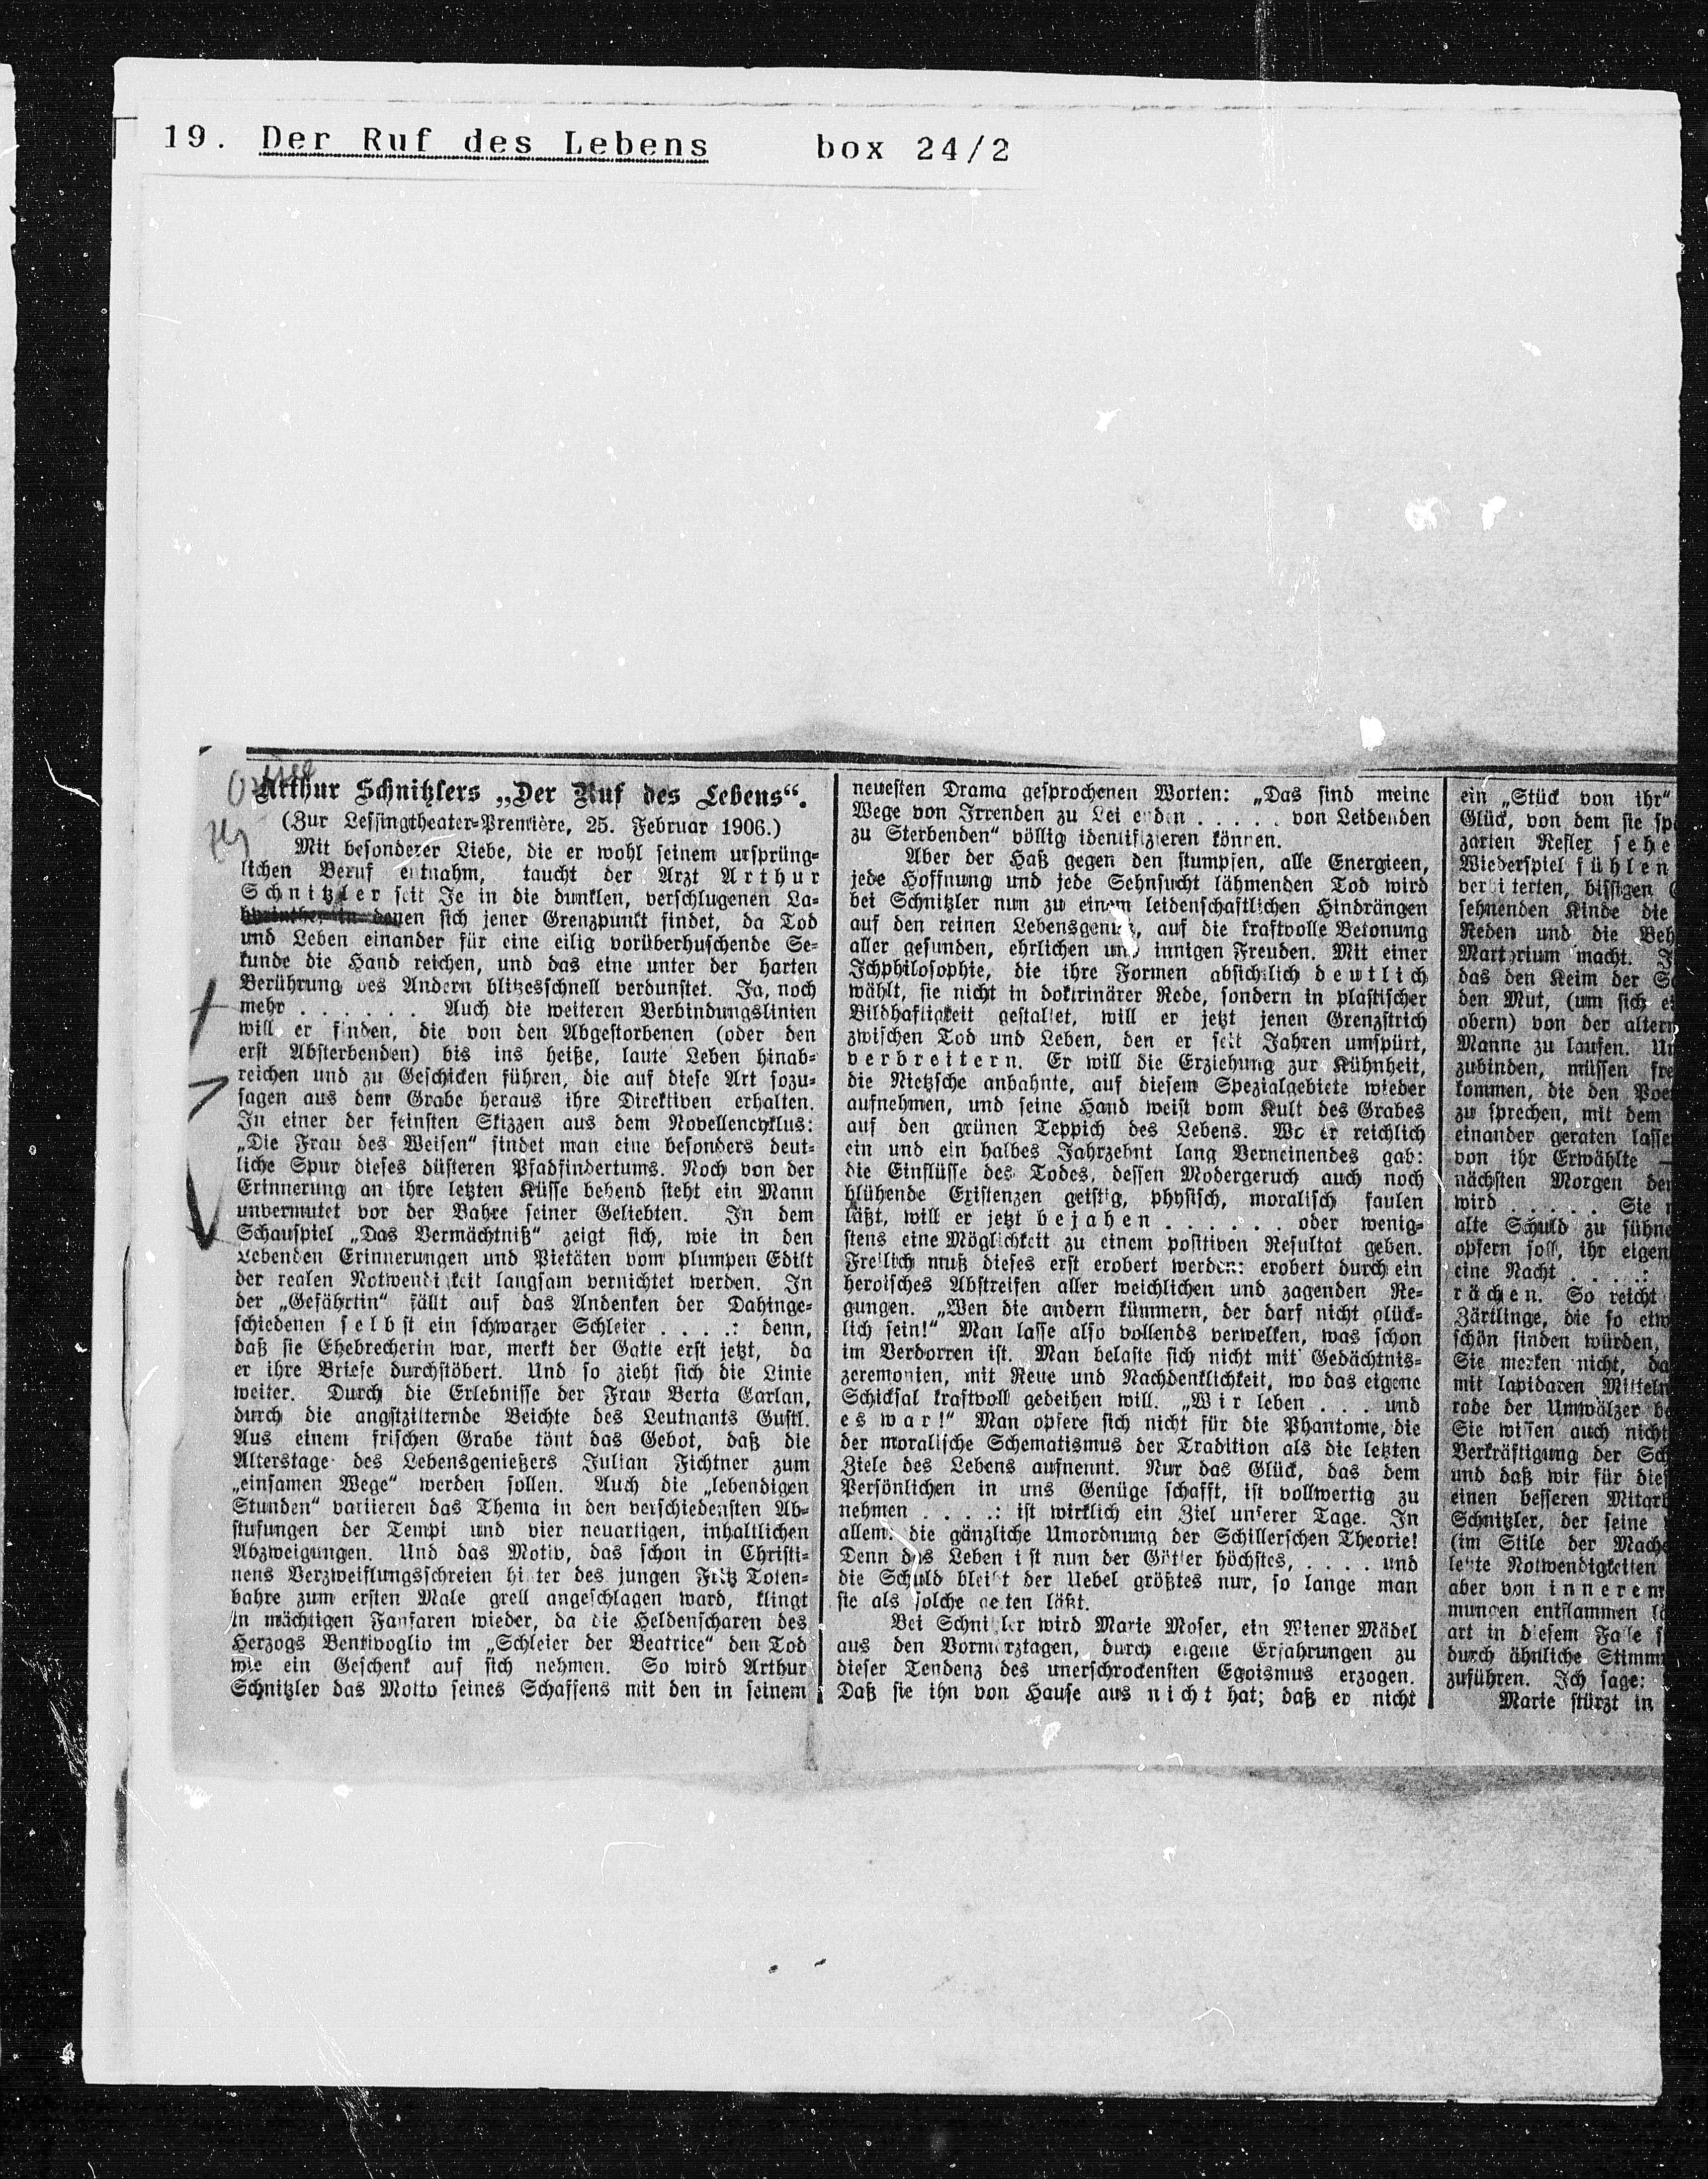 19. Der Ruf des Lebens box 24/2
Arthur Schnitzlers „Der Ruf des Lebens“.
(Zur Lessingtheater-Première, 25. Februar 1906.)
Mit besonderer Liebe, die er wohl seinem ursprüng-
lichen Beruf entnahm, taucht der Arzt Arthur
Schnitzler seit Je in die dunklen, verschlugenen La-
byrinthe, in denen sich jener Grenzpunkt findet, da Tod
und Leben einander für eine eilig vorüberhuschende Se-
kunde die Hand reichen, und das eine unter der harten
Berührung des Andern blitzesschnell verdunstet. Ja, noch
mehr . . . . . . Auch die weiteren Verbindungslinien
will er finden, die von den Abgestorbenen (oder den
erst Absterbenden) bis ins heiße, laute Leben hinab-
reichen und zu Geschicken führen, die auf diese Art sozu-
sagen aus dem Grabe heraus ihre Direktiven erhalten.
In einer der feinsten Skizzen aus dem Novellencyklus:
„Die Frau des Weisen“ findet man eine besonders deut-
liche Spur dieses düsteren Pfadfindertums. Noch von der
Erinnerung an ihre letzten Küsse bebend steht ein Mann
unvermutet vor der Bahre seiner Geliebten. In dem
Schauspiel „Das Vermächtniß“ zeigt sich, wie in den
Lebenden Erinnerungen und Pietäten vom plumpen Edikt
der realen Notwendigkeit langsam vernichtet werden. In
der „Gefährtin“ fällt auf das Andenken der Dahinge-
schiedenen selbst ein schwarzer Schleier . . . .: denn,
daß sie Ehebrecherin war, merkt der Gatte erst jetzt, da
er ihre Briefe durchstöbert. Und so zieht sich die Linie
weiter. Durch die Erlebnisse der Frau Berta Garlan,
durch die angstzitternde Beichte des Leutnants Gustl.
Aus einem frischen Grabe tönt das Gebot, daß die
Alterstage des Lebensgenießers Julian Fichtner zum
„einsamen Wege“ werden sollen. Auch die „lebendigen
Stunden“ variieren das Thema in den verschiedensten Ab-
stufungen der Tempi und vier neuartigen, inhaltlichen
Abzweigungen. Und das Motiv, das schon in Christi-
nens Verzweiflungsschreien hinter des jungen Fritz Toten-
bahre zum ersten Male grell angeschlagen ward, klingt
in mächtigen Fanfaren wieder, da die Heldenscharen des
Herzogs Bentivoglio im „Schleier der Beatrice“ den Tod
wie ein Geschenk auf sich nehmen. So wird Arthur
Schnitzler das Motto seines Schaffens mit den in seinem
neuesten Drama gesprochenen Worten: „Das sind meine
Wege von Irrenden zu Leidenden . . . . . von Leidenden
zu Sterbenden“ völlig identifizieren können.
Aber der Haß gegen den stumpfen, alle Energieen,
jede Hoffnung und jede Sehnsucht lähmenden Tod wird
bei Schnitzler nun zu einem leidenschaftlichen Hindrängen
auf den reinen Lebensgenuß, auf die kraftvolle Betonung
aller gesunden, ehrlichen und innigen Freuden. Mit einer
Ichphilosophie, die ihre Formen absichtlich deutlich
wählt, sie nicht in doktrinärer Rede, sondern in plastischer
Bildhaftigkeit gestaltet, will er jetzt jenen Grenzstrich
zwischen Tod und Leben, den er seit Jahren umspürt,
verbreitern. Er will die Erziehung zur Kühnheit,
die Nietzsche anbahnte, auf diesem Spezialgebiete wieder
aufnehmen, und seine Hand weist vom Kult des Grabes
auf den grünen Teppich des Lebens. Wo er reichlich
ein und ein halbes Jahrzehnt lang Verneinendes gab:
die Einflüsse des Todes, dessen Modergeruch auch noch
blühende Existenzen geistig, physisch, moralisch faulen
läßt, will er jetzt bejahen . . . . . . oder wenig-
stens eine Möglichkeit zu einem positiven Resultat geben.
Freilich muß dieses erst erobert werden: erobert durch ein
heroisches Abstreifen aller weichlichen und zagenden Re-
gungen. „Wen die andern kümmern, der darf nicht glück-
lich sein!“ Man lasse also vollends verwelken, was schon
im Verdorren ist. Man belaste sich nicht mit Gedächtnis-
zeremonien, mit Reue und Nachdenklichkeit, wo das eigene
Schicksal kraftvoll gedeihen will. „Wir leben . . . und
es war!“ Man opfere sich nicht für die Phantome, die
der moralische Schematismus der Tradition als die letzten
Ziele des Lebens aufnennt. Nur das Glück, das dem
Persönlichen in uns Genüge schafft, ist vollwertig zu
nehmen . . . .: ist wirklich ein Ziel unserer Tage. In
allem: die gänzliche Umordnung der Schillerschen Theorie!
Denn das Leben ist nun der Güter höchstes, . . . . und
die Schuld bleibt der Uebel größtes nur, so lange man
sie als solche gelten läßt.
Bei Schnitzler wird Marie Moser, ein Wiener Mädel
aus den Vormärztagen, durch eigene Erfahrungen zu
dieser Tendenz des unerschrockensten Egoismus erzogen.
Daß sie ihn von Hause aus nicht hat; daß er nicht
ein „Stück von ihr“
Glück, von dem sie
zarten Reflex sehe
Wiederspiel fühlen
verbitterten, bissigen
sehnenden Kinde die
Reden und die
Martyrium macht.
das den Keim der
den Mut, (um sich
obern) von der
Manne zu laufen.
zubinden, müssen
kommen, die den
zu sprechen, mit dem
einander geraten
von ihr Erwählte —
nächsten Morgen
wird . . . . . Sie
alte Schuld zu
opfern soll, ihr
eine Nacht . . . . .
rächen. So reicht
Zärtlinge, die so
schön finden würden,
Sie merken nicht,
mit lapidaren
rade der Umwälzer
Sie wissen auch nicht
Verkräftigung der
und daß wir für
einen besseren
Schnitzler, der seine
(im Stile der
letzte Notwendigkeiten
aber von innerem
mungen entflammen
art in diesem Falle
durch ähnliche
zuführen. Ich sage:
Marie stürzt in